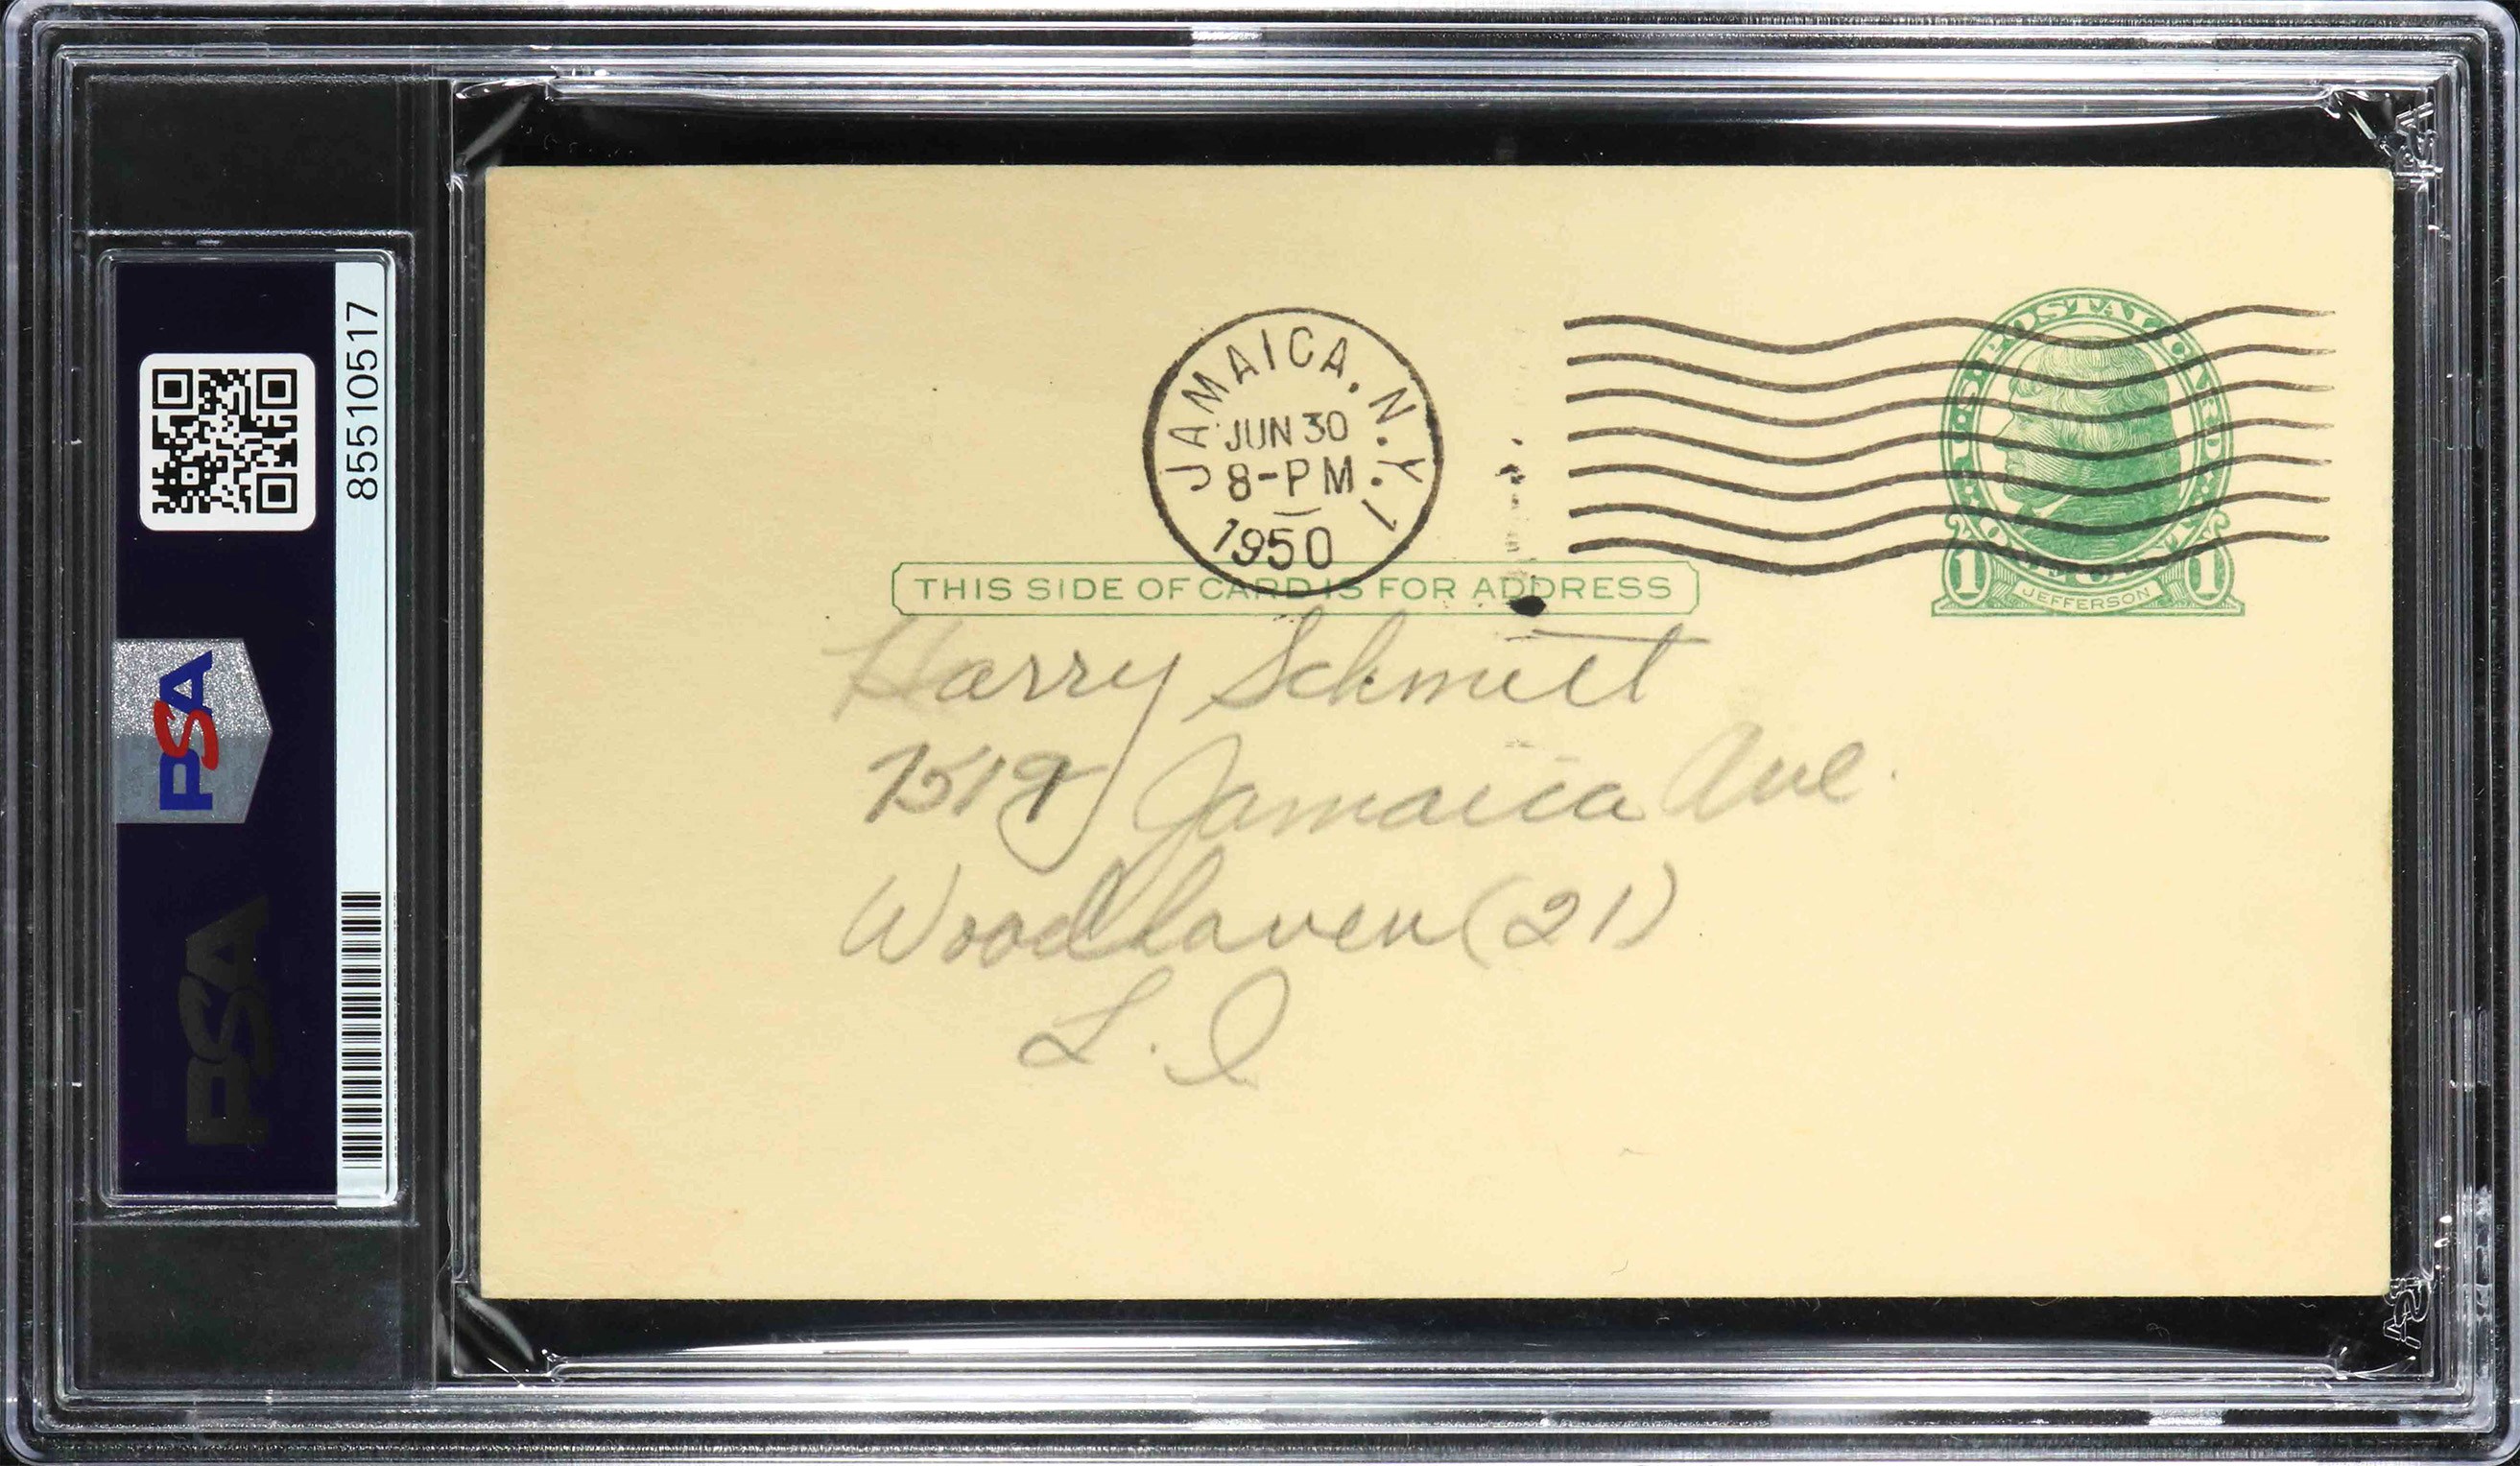 85510517
PSA
PSA
JAMAICA, N.Y. 1
JUN 30
8-PM
1950
U.S. POSTAL CARD
ONE CENT
1 JEFFERSON 1
THIS SIDE OF CARD IS FOR ADDRESS
Harry Schmitt
7519 Jamaica Ave.
Woodhaven (21)
L. I
PSA
PSA